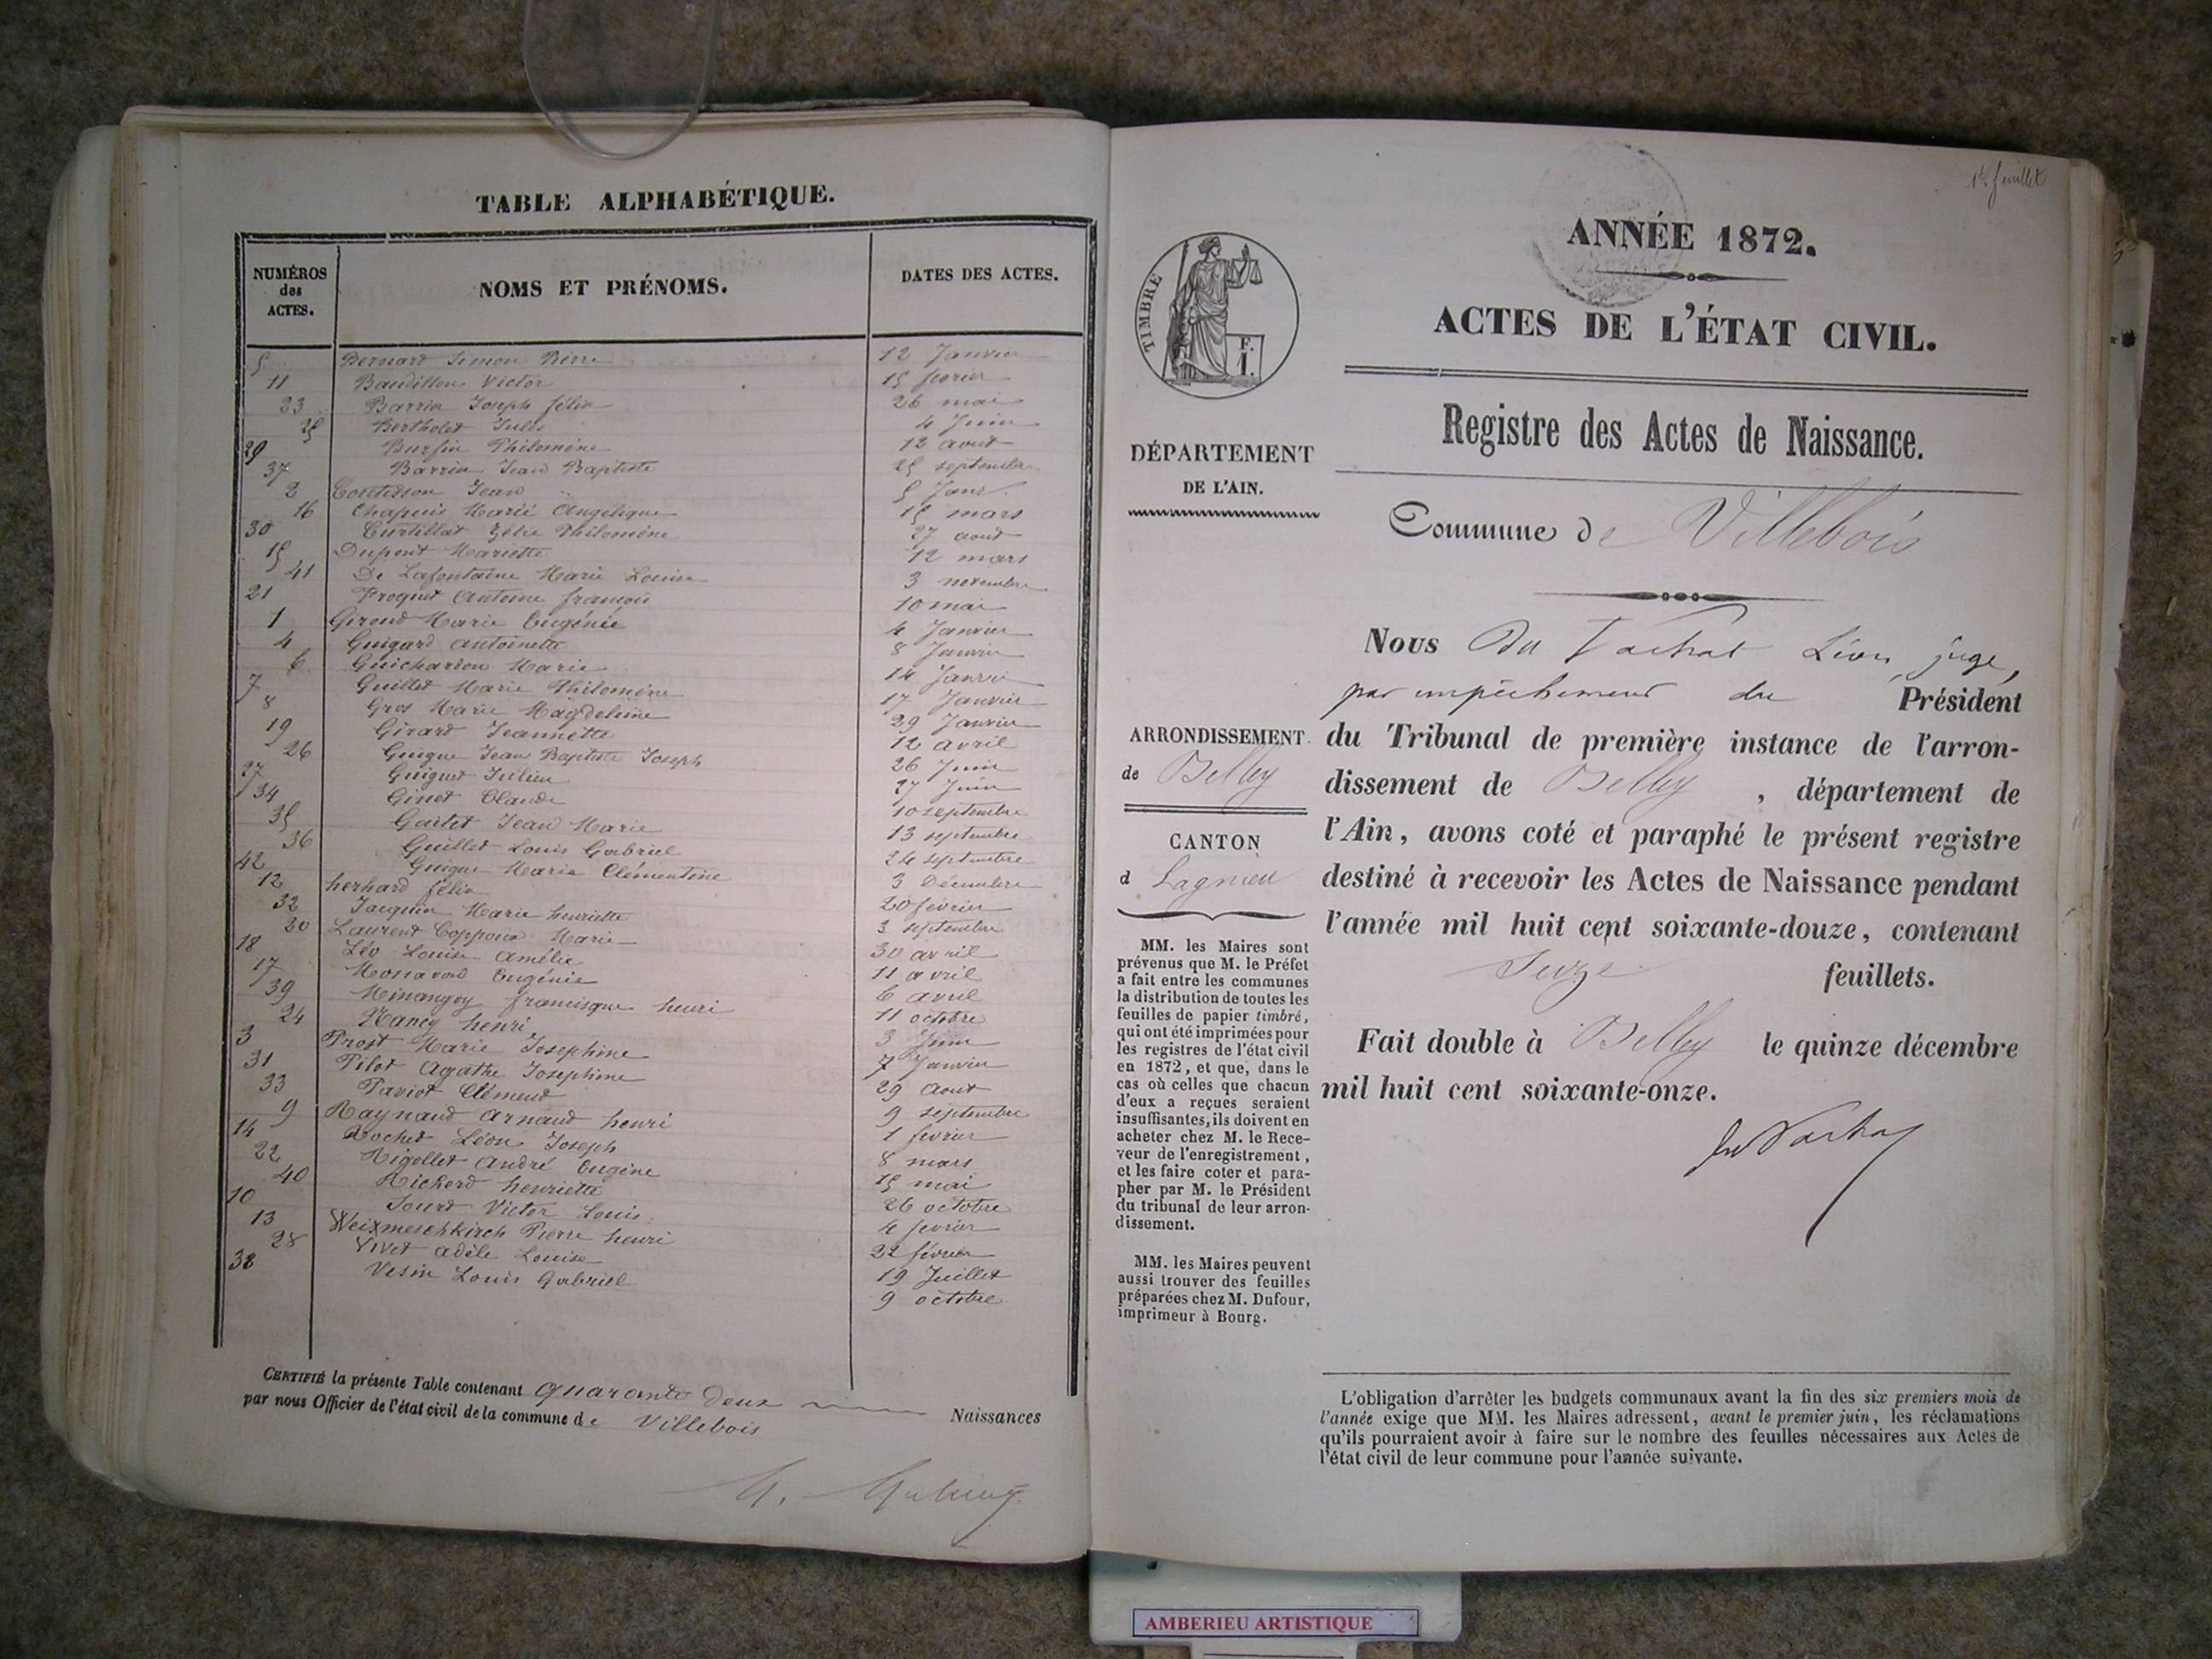 TABLE ALPHABÉTIQUE.
NUMÉROS des ACTES. NOMS ET PRÉNOMS. DATES DES ACTES.
5 Bernard Simon Pierre 12 Janvier
11 Baudillon Victor 15 fevrier
23 Barrin Joseph félix 26 mai
25 Bertholet Jules 4 Juin
29 Philomène 12 aout
37 Barrin Jean Baptiste 25 septembre
2 Jean 5 Janv.
16 Chapuis Marie Angélique 15 mars
30 Curtillat Zélie Philomène 27 aout
15 Dupont Mariette 12 mars
41 De Lafontaine Marie Louise 3 novembre
21 Froquet Antoine françois 10 mai
1 Giroud Marie Eugénie 4 Janvier
4 Guigard antoinette 8 Janvier
6 Guichardon Marie 14 Janvier
7 Guillet Marie Philomène 17 Janvier
8 Gros Marie Magdeleine 29 Janvier
19 Girard Jeannette 12 avril
26 Guigue Jean Baptiste Joseph 26 Juin
27 Guiguet Julien 27 Juin
34 Ginet Claude 10 septembre
35 Jean Marie 13 septembre
36 Guillet Louis Gabriel 24 septembre
42 Guigue Marie Clémentine 3 Décembre
12 herhard félix 20 fevrier
32 Jacquin Marie henriette 3 septembre
20 Laurent Marie 30 avril
18 Léo Louise Amélie 11 avril
17 Eugénie 6 avril
39 francisque henri 11 octobre
24 Nancy henri 3 Juin
3 Prost Marie Josephine 7 Janvier
31 Pilot Agathe Josephine 29 aout
33 Paviot Clément 9 septembre
9 Raynaud Arnaud henri 1 fevrier
14 Rochet Léon Joseph 8 mars
22 Rigollet André Eugène 15 mai
40 Richerd henriette 26 octobre
10 Sourd Victor Louis 4 fevrier
13 Weixmeschkirch Pierre henri 22 février
28 Vivet adèle Louise 19 Juillet
38 Vesin Louis Gabriel 9 octobre
CERTIFIÉ la présente Table contenant quarante Deux Naissances
par nous Officier de l'état civil de la commune de Villebois
1er feuillet
ANNÉE 1872.
ACTES DE L'ÉTAT CIVIL.
TIMBRE
F. I.
Registre des Actes de Naissance.
DÉPARTEMENT
DE L'AIN.
Commune de Villebois
ARRONDISSEMENT
de Belley
CANTON
d Lagnieu
MM. les Maires sont
prévenus que M. le Préfet
a fait entre les communes
la distribution de toutes les
feuilles de papier timbré,
qui ont été imprimées pour
les registres de l'état civil
en 1872, et que, dans le
cas où celles que chacun
d'eux a reçues seraient
insuffisantes, ils doivent en
acheter chez M. le Rece-
veur de l'enregistrement,
et les faire coter et para-
pher par M. le Président
du tribunal de leur arron-
dissement.
MM. les Maires peuvent
aussi trouver des feuilles
préparées chez M. Dufour,
imprimeur à Bourg.
Nous Du Vachat Léon, juge,
par empêchement du Président
du Tribunal de première instance de l'arron-
dissement de Belley, département de
l'Ain, avons coté et paraphé le présent registre
destiné à recevoir les Actes de Naissance pendant
l'année mil huit cent soixante-douze, contenant
feuillets.
Fait double à Belley le quinze décembre
mil huit cent soixante-onze.
du Vachat
L'obligation d'arrêter les budgets communaux avant la fin des six premiers mois de
l'année exige que MM. les Maires adressent, avant le premier juin, les réclamations
qu'ils pourraient avoir à faire sur le nombre des feuilles nécessaires aux Actes de
l'état civil de leur commune pour l'année suivante.
AMBERIEU ARTISTIQUE